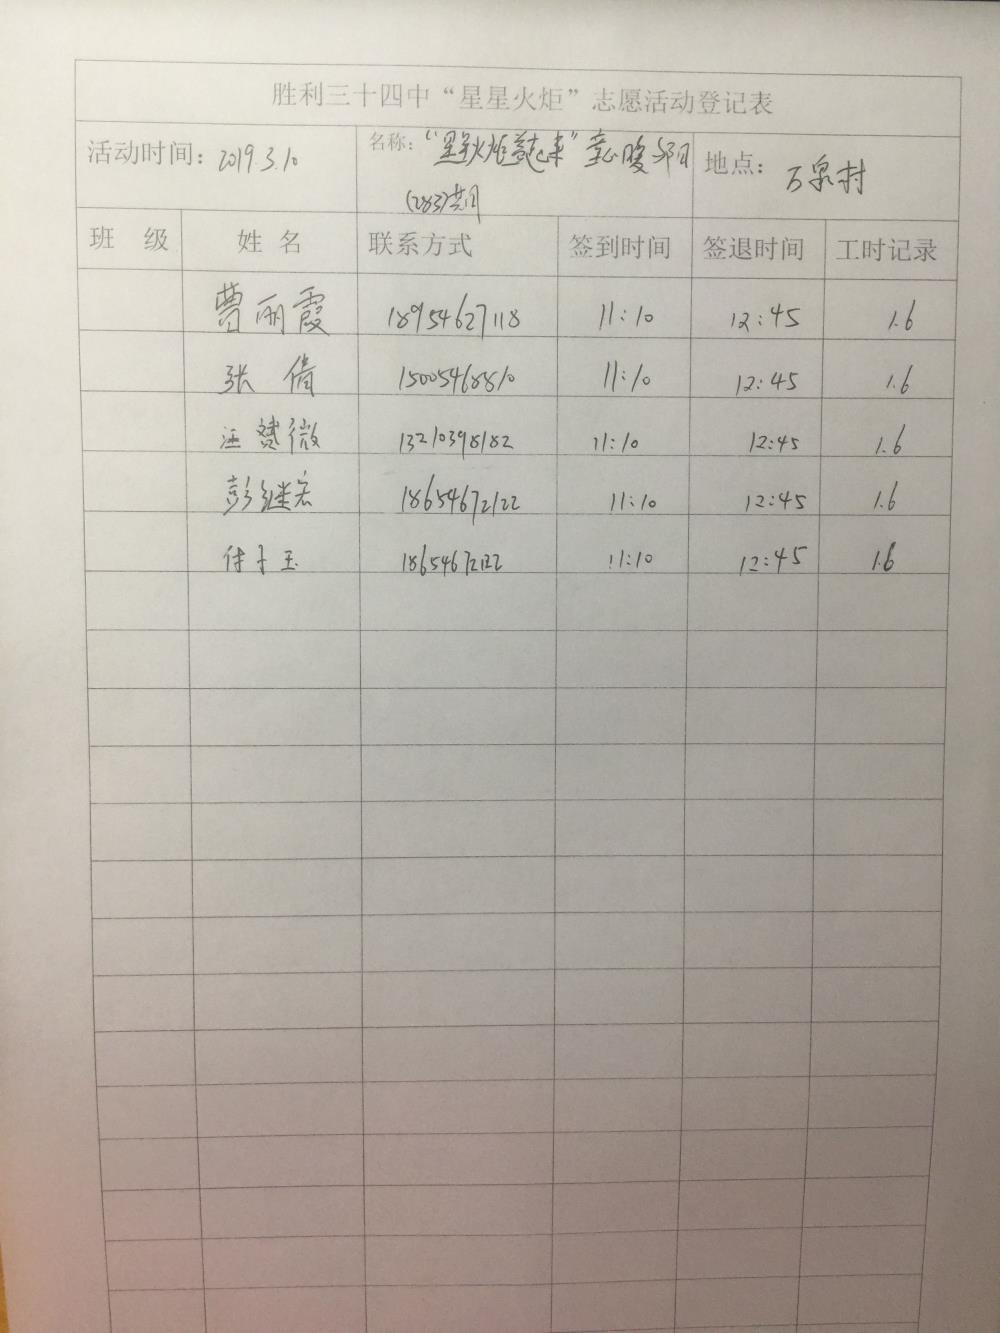 胜利三十四中“星星火炬”志愿活动登记表
活动时间：2019.3.10 名称：“星星火炬益起来”童心暖夕阳 地点：万泉村
(283)共同
班 级 姓 名 联系方式 签到时间 签退时间 工时记录
曹丽霞 18954627118 11:10 12:45 1.6
张倩 15005468810 11:10 12:45 1.6
汪赟微 13210398182 11:10 12:45 1.6
彭继宏 18654672122 11:10 12:45 1.6
付子玉 18654672122 11:10 12:45 1.6